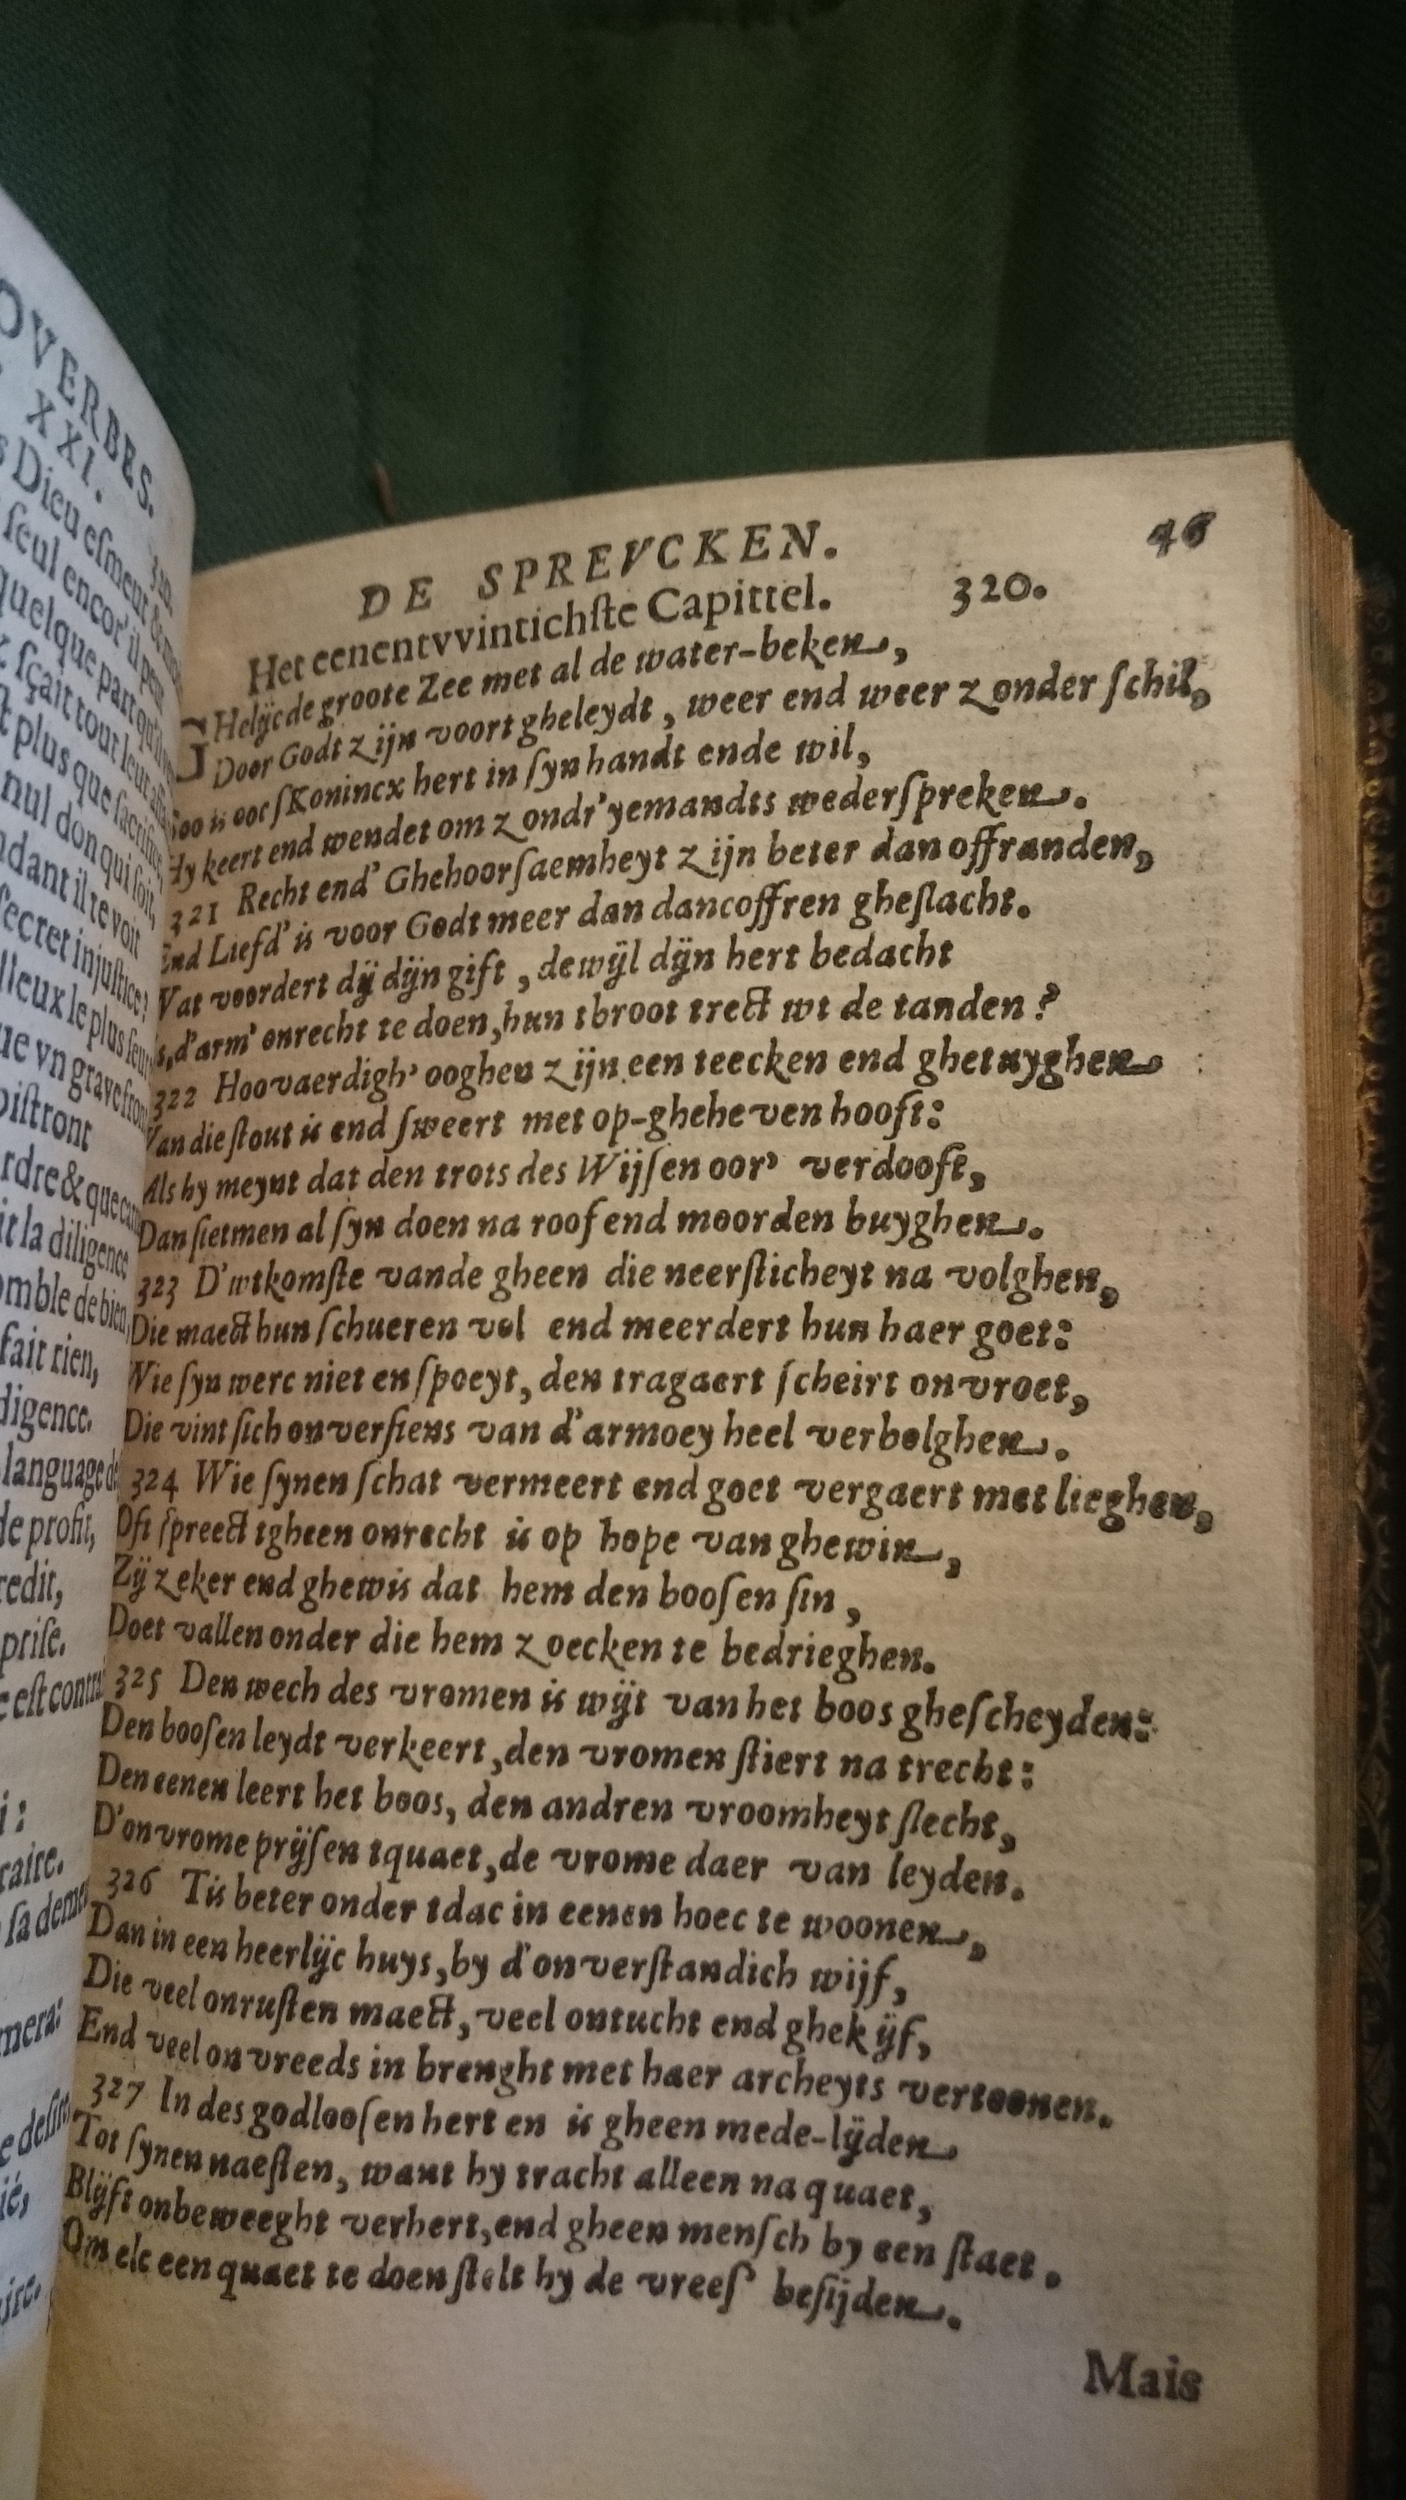 OVERBES.
XXI.
320.
Dieu esmeut &
seul encor' il peut
quelque part qu'il
sçait tout leur
plus que sacrifice,
nul don qui soit,
il te voit
secret injustice?
le plus
vn grave front
rdre & que
it la diligence
omble de bien,
fait rien,
digence.
language de
de profit,
prise.
est contr
raire.
sa deme
DE SPREVCKEN. 46
Het eenentvvintichſte Capittel. 320.
GHelijc de groote Zee met al de water-beken,
Door Godt zijn voort gheleydt, weer end weer zonder ſchil,
Soo is ooc ſKonincx hert in ſyn handt ende wil,
Hy keert end wendet om zondr' yemandts wederſpreken.
321 Recht end' Ghehoorſaemheyt zijn beter dan offranden,
End Liefd' is voor Godt meer dan dancoffren gheſlacht.
Wat voordert dij dijn gift, dewijl dijn hert bedacht
Is, d'arm' onrecht te doen, hun tbroot trect wt de tanden?
322 Hoovaerdigh' ooghen zijn een teecken end ghetuyghen
Van die ſtout is end ſweert met op-ghehevenhooft:
Als hy meynt dat den trots des Wijſen oor' verdooft,
Dan ſietmen al ſyn doen na roof end moorden buyghen.
323 D'wtkomſte vande gheen die neerſticheyt na volghen,
Die maect hun ſchueren vol end meerdert hun haer goet:
Wie ſyn werc niet en ſpoeyt, den tragaert ſcheirt onvroet,
Die vint ſich onverſiens van d'armoey heel verbolghen.
324 Wie ſynen ſchat vermeert end goet vergaert met lieghen,
Oft ſpreect tgheen onrecht is op hope van ghewin,
Zij zeker end ghewis dat hem den booſen ſin,
Doet vallen onder die hem zoecken te bedrieghen.
325 Den wech des vromen is wijt van het boos gheſcheyden:
Den booſen leydt verkeert, den vromen ſtiert na trecht:
Den eenen leert het boos, den andren vroomheyt ſlecht,
D'onvrome prijſen tquaet, de vrome daer van leyden.
326 Tis beter onder tdac in eenen hoec te woonen,
Dan in een heerlijc huys, by d'onverſtandich wijf,
Die veel onruſten maect, veel ontucht end ghekijf,
End veel onvreeds in brenght met haer archeyts vertoonen.
327 In des godlooſen hert en is gheen mede-lijden
Tot ſynen naeſten, want hy tracht alleen na quaet,
Blijft onbeweeght verhert, end gheen menſch by een ſtaet.
Om elc een quaet te doen ſtelt hy de vreeſ' beſijden.
Mais